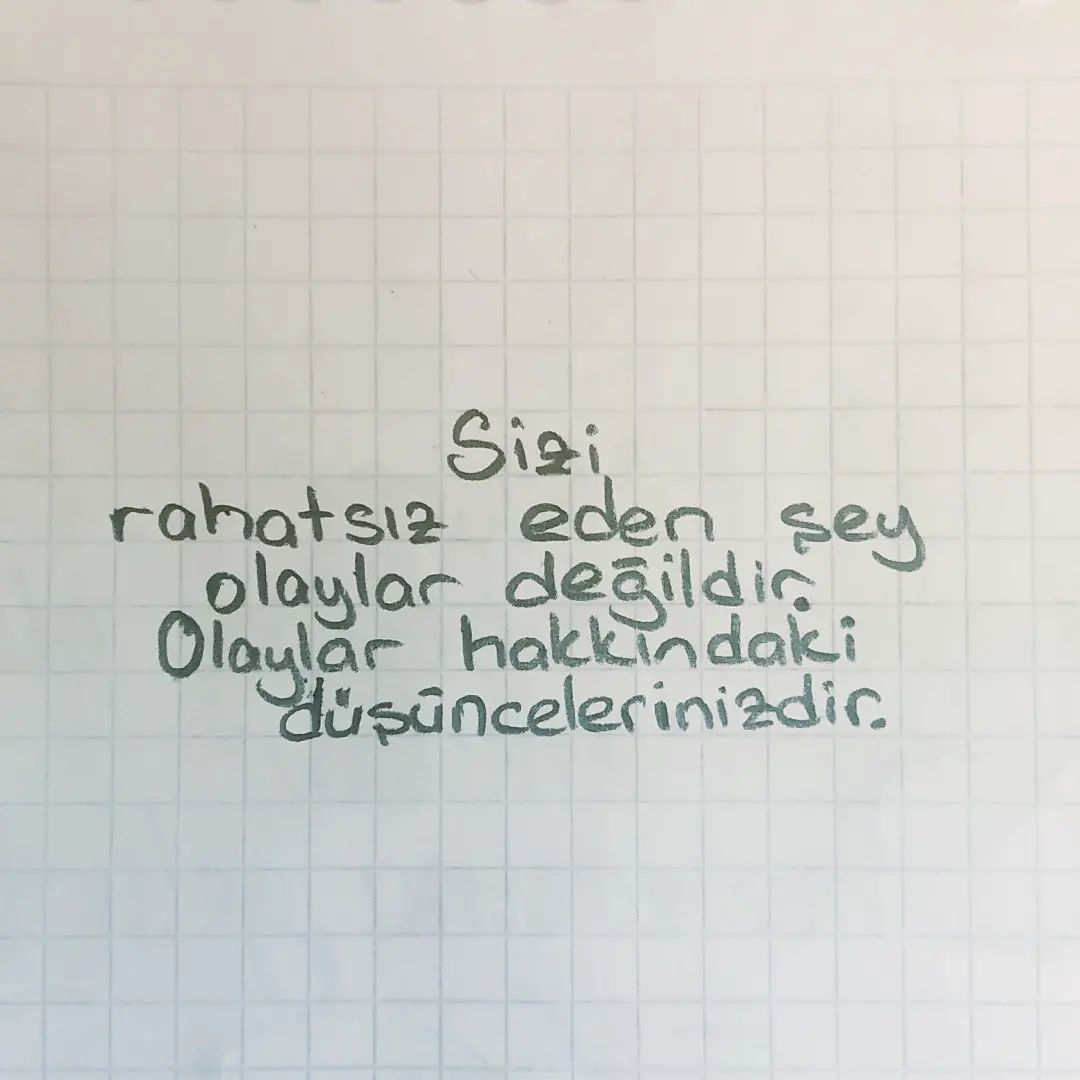 Sizi
rahatsız eden şey
olaylar değildir.
Olaylar hakkındaki
düşüncelerinizdir.